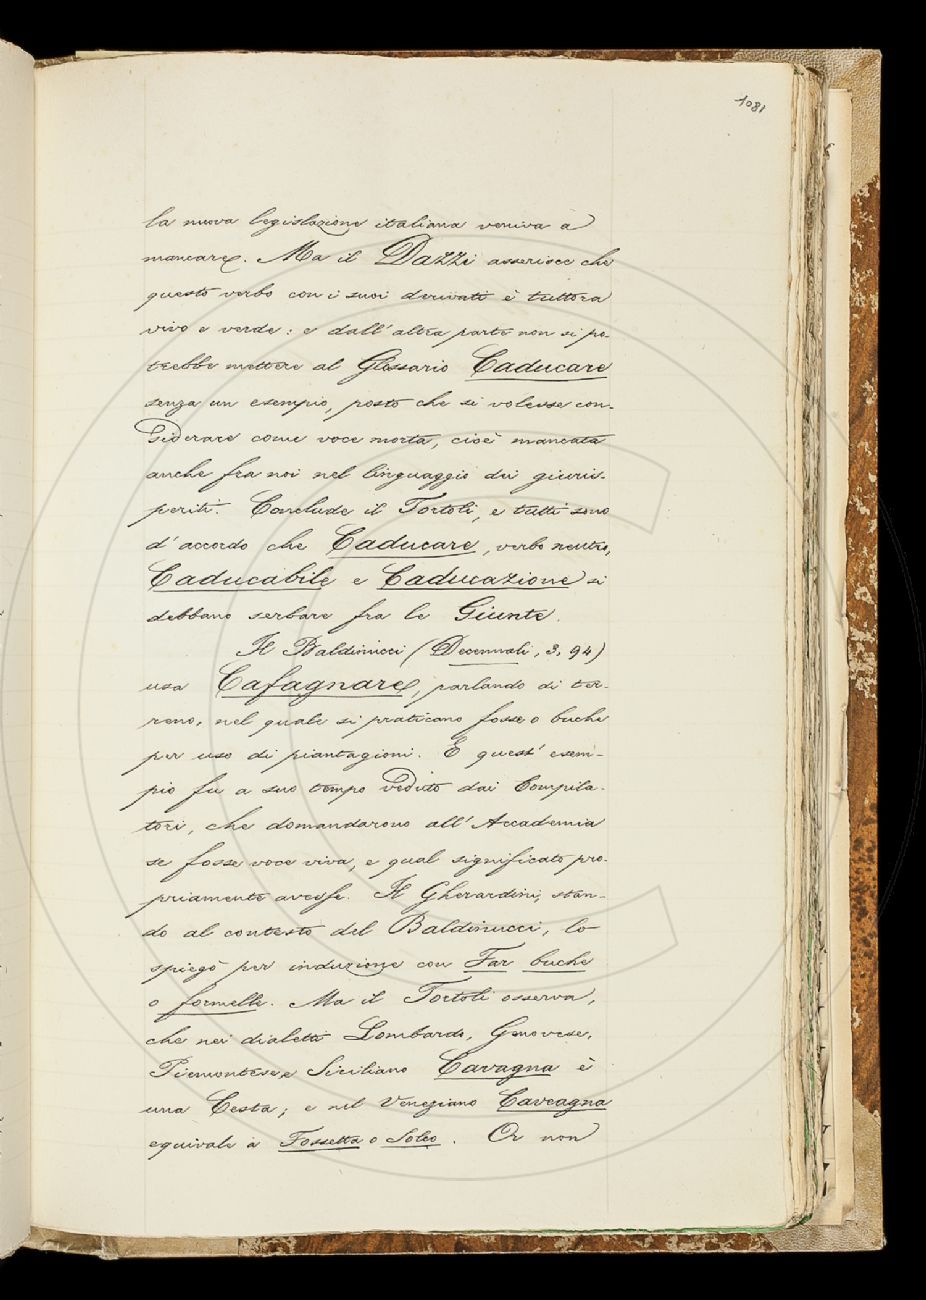 1081
la nuova legislazione italiana veniva a
mancare. Ma il Dazzi asserisce che
questo verbo con i suoi derivati è tuttora
vivo e verde: e dall'altra parte non si po-
trebbe mettere al Glossario Caducare
senza un esempio, posto che si volesse con-
siderare come voce morta, cioè mancata
anche fra noi nel linguaggio dei giuris-
periti. Conclude il Tortoli, e tutti sono
d'accordo che Caducare, verbo neutro,
Caducabile e Caducazione si
debbano serbare fra le Giunte.
Il Baldinucci (Decennali, 3, 94)
usa Cafagnare, parlando di ter-
reno, nel quale si praticano fosse o buche
per uso di piantagioni. E quest'esem-
pio fu a suo tempo veduto dai Compila-
tori, che domandarono all'Accademia
se fosse voce viva, e qual significato pro-
priamente avesse. Il Gherardini, stan-
do al contesto del Baldinucci, lo
spiegò per induzione con Far buche
o formelle. Ma il Tortoli osserva,
che nei dialetti Lombardo, Genovese,
Piemontese e Siciliano Cavagna è
una Cesta; e nel Veneziano Caveagna
equivale a Fossetta o Solco. Or non